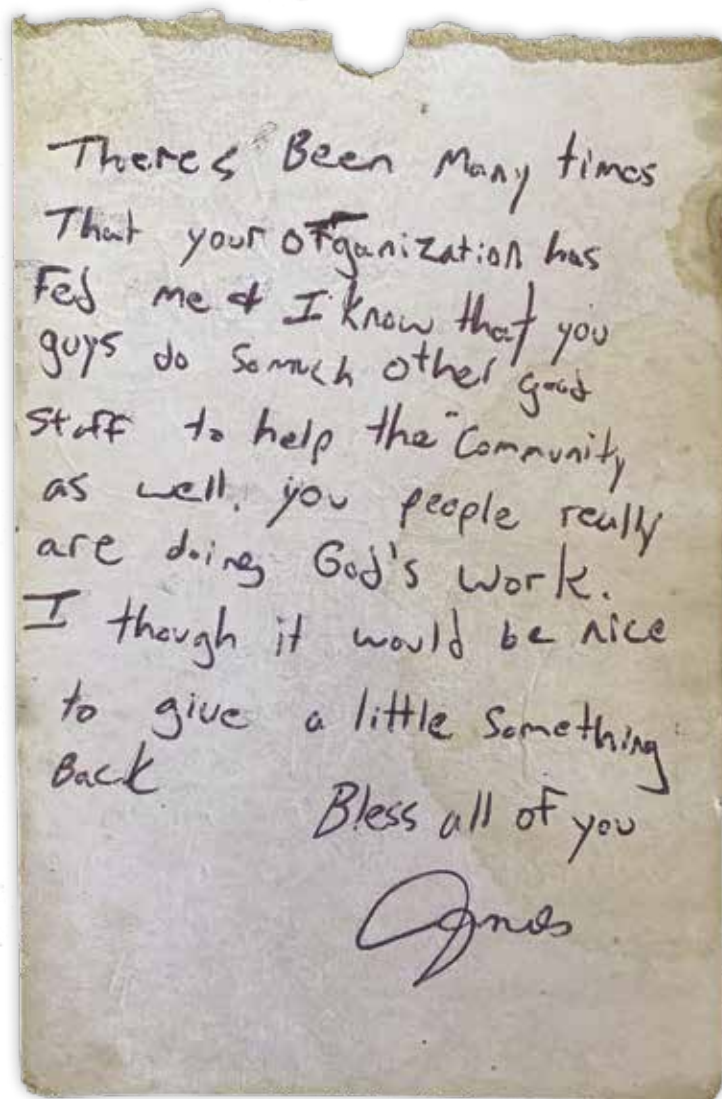 Theres Been Many times
That your organization has
Fed me & I know that you
guys do so much other good
stuff to help the Community
as well. you people really
are doing God's work.
I though it would be nice
to give a little something
Back
Bless all of you